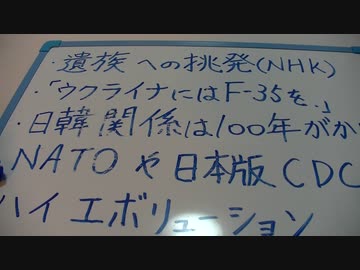 ・遺族への挑発(NHK)
・「ウクライナにはF-35を.」
・日韓関係は100年がか
NATOや日本版CDC
ハイエボリューション